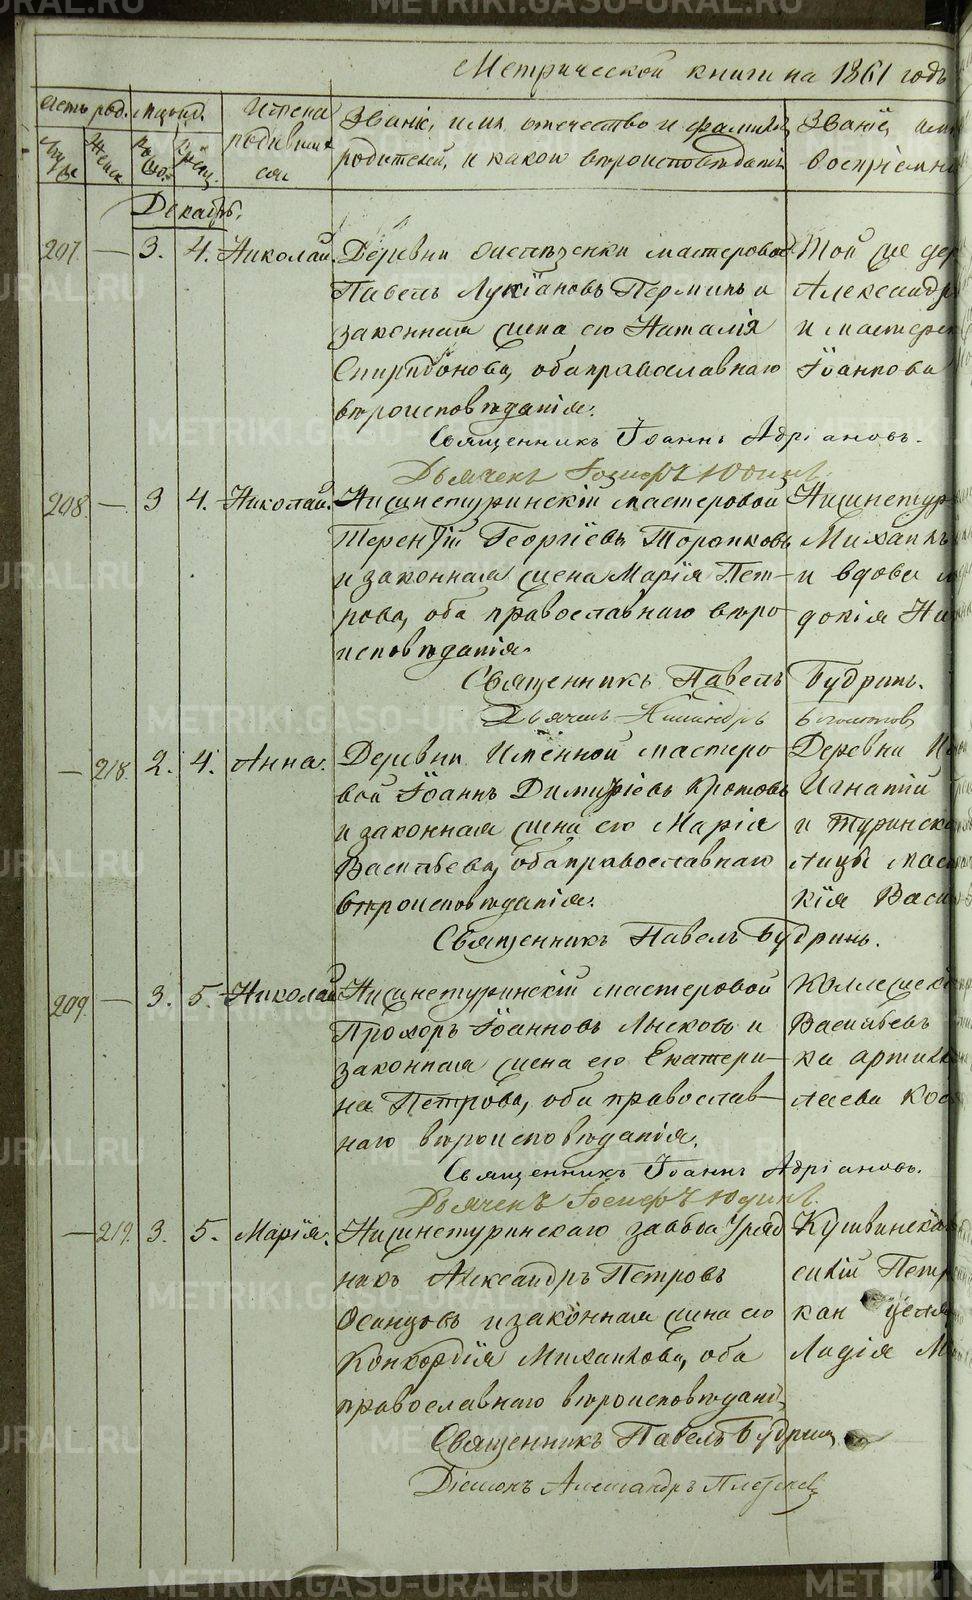 Метрической книги на 1861 годъ
Счетъ род. Мѣсяц.
Имена родившихся
Званіе, имя, отечество и фамилія родителей, и какого вѣроисповѣданія
Званіе, имя
воспріемни
Декабрь.
207. — 3. 4. Николай. Деревни мастеровой Той же дер
Павелъ Лукіановъ Перминъ и Александр
законная жена его Наталія и мастерск
Спиридонова, оба православнаго Іоаннова
вѣроисповѣданія.
Священникъ Іоаннъ Адріановъ.
Дьячекъ Іосифъ Юдинъ.
208. — 3 4. Николай. Нижнетуринскій мастеровой Нижнетур
Терентій Георгіевъ Торопковъ Михаилъ
и законная жена Марія Пет- и вдова
рова, оба православнаго вѣро- докія Ни
исповѣданія.
Священникъ Павелъ Будринъ.
Дьячекъ
— 218. 2. 4. Анна. Деревни Именной мастеро Деревни И
вой Іоаннъ Димитріевъ Кротовъ Игнатій
и законная жена его Марія и Туринск
Васильева, оба православнаго лицы мас
вѣроисповѣданія. кія Васи
Священникъ Павелъ Будринъ.
209. — 3. 5. Николай Нижнетуринскій мастеровой Коллежск
Прохоръ Іоанновъ Лысковъ и Васильевъ
законная жена его Екатери- ка артилл
на Петрова, оба православ- лаева Кос
наго вѣроисповѣданія.
Священникъ Іоаннъ Адріановъ.
Дьячекъ Іосифъ Юдинъ.
— 219. 3. 5. Марія. Нижнетуринскаго завода Уряд Кушвинска
никъ Александръ Петровъ скій Петр
Осинцовъ и законная жена его кан
Конкордія Михайлова, оба Лидія М
православнаго вѣроисповѣдані.
Священникъ Павелъ Будринъ
Діаконъ Александръ
METRIKI.GASO-URAL.RU